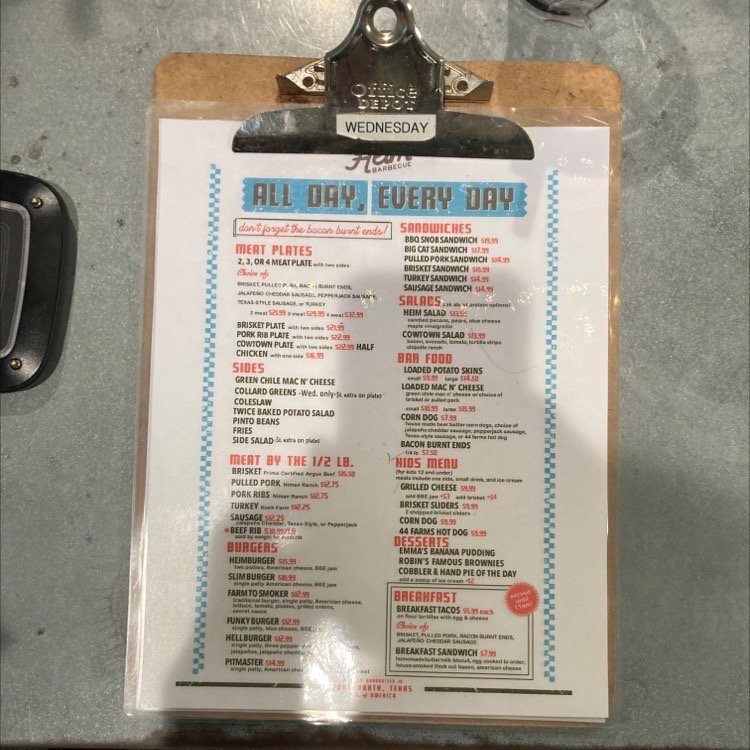 Office
DEPOT
WEDNESDAY
Heim
BARBECUE
ALL DAY, EVERY DAY
don't forget the bacon burnt ends!
MEAT PLATES
2, 3, OR 4 MEAT PLATE with two sides
Choice of:
BRISKET, PULLED PORK, BACON BURNT ENDS,
JALAPEÑO CHEDDAR SAUSAGE, PEPPERJACK SAUSAGE,
TEXAS-STYLE SAUSAGE, or TURKEY
2 meat $21.99 3 meat $29.99 4 meat $32.99
BRISKET PLATE with two sides $21.99
PORK RIB PLATE with two sides $22.99
COWTOWN PLATE with two sides $22.99 HALF
CHICKEN with one side $16.99
SIDES
GREEN CHILE MAC N' CHEESE
COLLARD GREENS -Wed. only-$1 extra on plates
COLESLAW
TWICE BAKED POTATO SALAD
PINTO BEANS
FRIES
SIDE SALAD-$1 extra on plates
MEAT BY THE 1/2 LB.
BRISKET Prime Certified Angus Beef $15.50
PULLED PORK Niman Ranch $12.75
PORK RIBS Niman Ranch $12.75
TURKEY Koch Farm $12.25
SAUSAGE $12.25
Jalapeño Cheddar, Texas-Style, or Pepperjack
BEEF RIB $30.99/LB
sold by weight for each rib
BURGERS
HEIMBURGER $15.99
two patties, American cheese, BBE jam
SLIM BURGER $10.99
single patty American cheese, BBE jam
FARM TO SMOKER $12.99
traditional burger, single patty, American cheese,
lettuce, tomato, pickles, grilled onions,
secret sauce
FUNKY BURGER $12.99
single patty, blue cheese, BBE
HELL BURGER $12.99
single patty, three pepper
jalapeños, jalapeño
PITMASTER $14.99
single patty, American
SANDWICHES
BBQ SNOB SANDWICH $19.99
BIG CAT SANDWICH $17.99
PULLED PORK SANDWICH $14.99
BRISKET SANDWICH $16.99
TURKEY SANDWICH $14.99
SAUSAGE SANDWICH $14.99
SALADS ask about protein options!
HEIM SALAD $13.99
candied pecans, pears, blue cheese
maple vinaigrette
COWTOWN SALAD $13.99
bacon, avocado, tomato, tortilla strips
chipotle ranch
BAR FOOD
LOADED POTATO SKINS
small $9.99 large $14.50
LOADED MAC N' CHEESE
green chile mac n' cheese w/ choice of
brisket or pulled pork
small $10.99 large $15.99
CORN DOG $7.99
house made beer batter corn dogs, choice of
jalapeño cheddar sausage, pepperjack sausage,
Texas-style sausage, or 44 farms hot dog
BACON BURNT ENDS
1/4 lb $7.50
KIDS MENU
(for kids 12 and under)
meals include one side, small drink, and ice cream
GRILLED CHEESE $9.99
add BBE jam +$3 add brisket +$4
BRISKET SLIDERS $9.99
2 chopped brisket sliders
CORN DOG $9.99
44 FARMS HOT DOG $9.99
DESSERTS
EMMA'S BANANA PUDDING
ROBIN'S FAMOUS BROWNIES
COBBLER & HAND PIE OF THE DAY
add a scoop of ice cream +$2
BREAKFAST
served until 11am!
BREAKFAST TACOS $5.99 each
on flour tortillas with egg & cheese
Choice of:
BRISKET, PULLED PORK, BACON BURNT ENDS,
JALAPEÑO CHEDDAR SAUSAGE
BREAKFAST SANDWICH $7.99
homemade buttermilk biscuit, egg cooked to order,
house-smoked thick cut bacon, american cheese
GUARANTEED IN
FORT WORTH, TEXAS
OF AMERICA